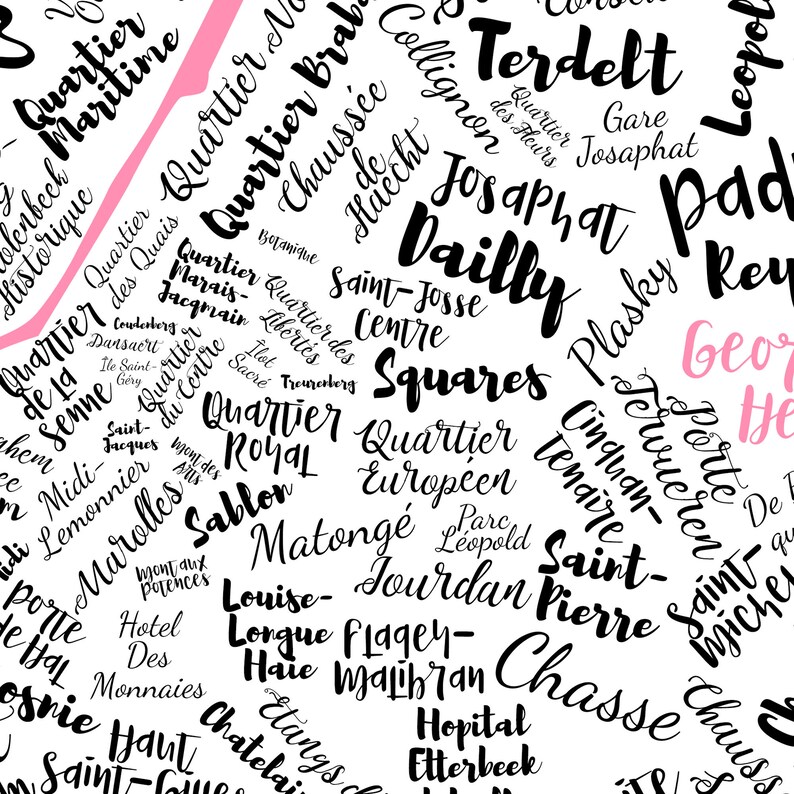 Quartier
Maritime
Quartier
Quartier
Chaussée
de
Haecht
Collignon
Terdelt
Quartier
des Fleurs
Gare
Josaphat
Josaphat
Dailly
Historique
Quartier
des Quais
Quartier
Marais-
Jacqmain
Botanique
Quartier des
Libertés
Saint-Josse
Centre
Plasky
Quartier
de la
Senne
Coudenberg
Dansaert
Île Saint-
Géry
Quartier
du Centre
Îlot
Sacré
Treurenberg
Squares
Quartier
Royal
Quartier
Européen
Cinquan-
tenaire
Porte
Tervueren
Saint-
Jacques
Mont des
Arts
Midi-
Lemonnier
Marolles
Sablon
Matongé
Parc
Léopold
Jourdan
Saint-
Pierre
Saint-
Mont aux
Potences
Porte
Hotel
Des
Monnaies
Louise-
Longue
Haie
Flagey-
Malibran
Chasse
Hopital
Etterbeek
Haut